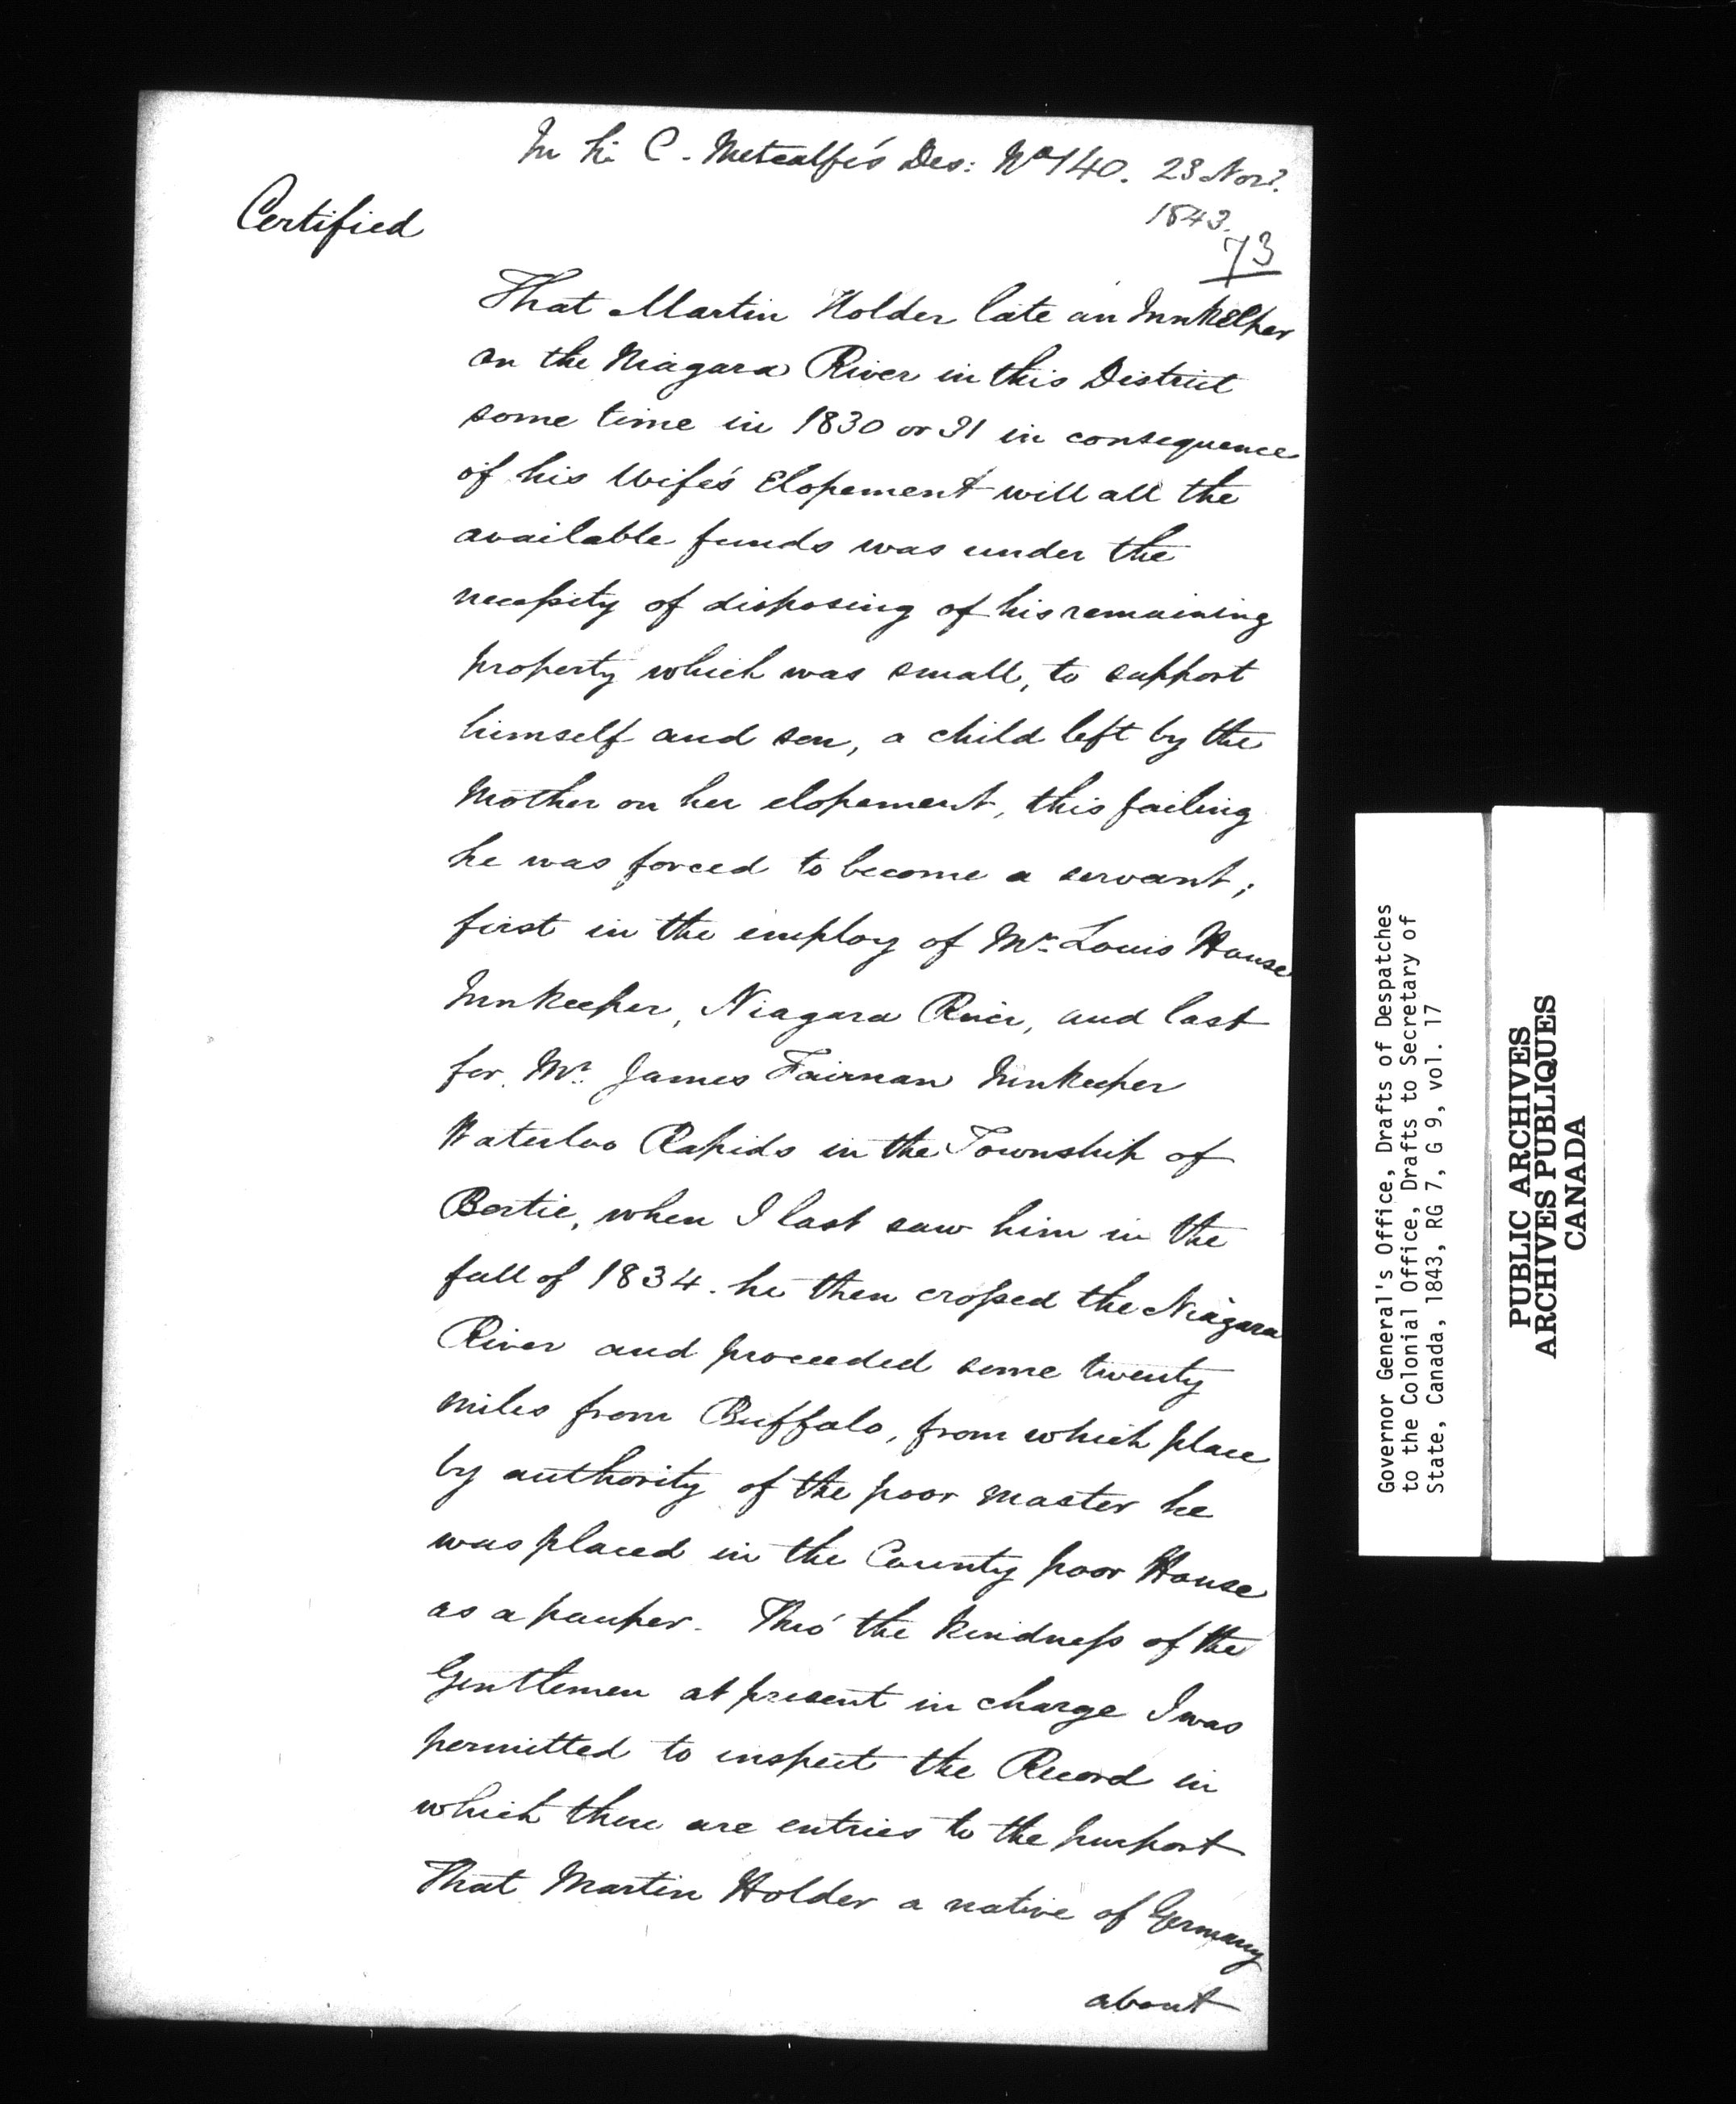 In Sir C. Metcalfe's Des: No 140. 23 Novr.
1843.
73
Certified
That Martin Holder late an Innkeeper
on the Niagara River in this District
some time in 1830 or 31 in consequence
of his Wife's Elopement will all the
available funds was under the
necessity of disposing of his remaining
property which was small, to support
himself and son, a child left by the
Mother on her elopement, this failing
he was forced to become a servant;
first in the employ of Mr. Louis House
Innkeeper, Niagara River, and last
for Mr. James Fairman Innkeeper
Waterloo Rapids in the Township of
Bertie, when I last saw him in the
fall of 1834. he then crossed the Niagara
River and proceeded some twenty
miles from Buffalo, from which place
by authority of the poor master he
was placed in the County poor House
as a pauper. Thro' the kindness of the
Gentlemen at present in charge I was
permitted to inspect the Record in
which there are entries to the purport
That Martin Holder a native of Germany
about
Governor General's Office, Drafts of Despatches
to the Colonial Office, Drafts to Secretary of
State, Canada, 1843, RG 7, G 9, vol. 17
PUBLIC ARCHIVES
ARCHIVES PUBLIQUES
CANADA